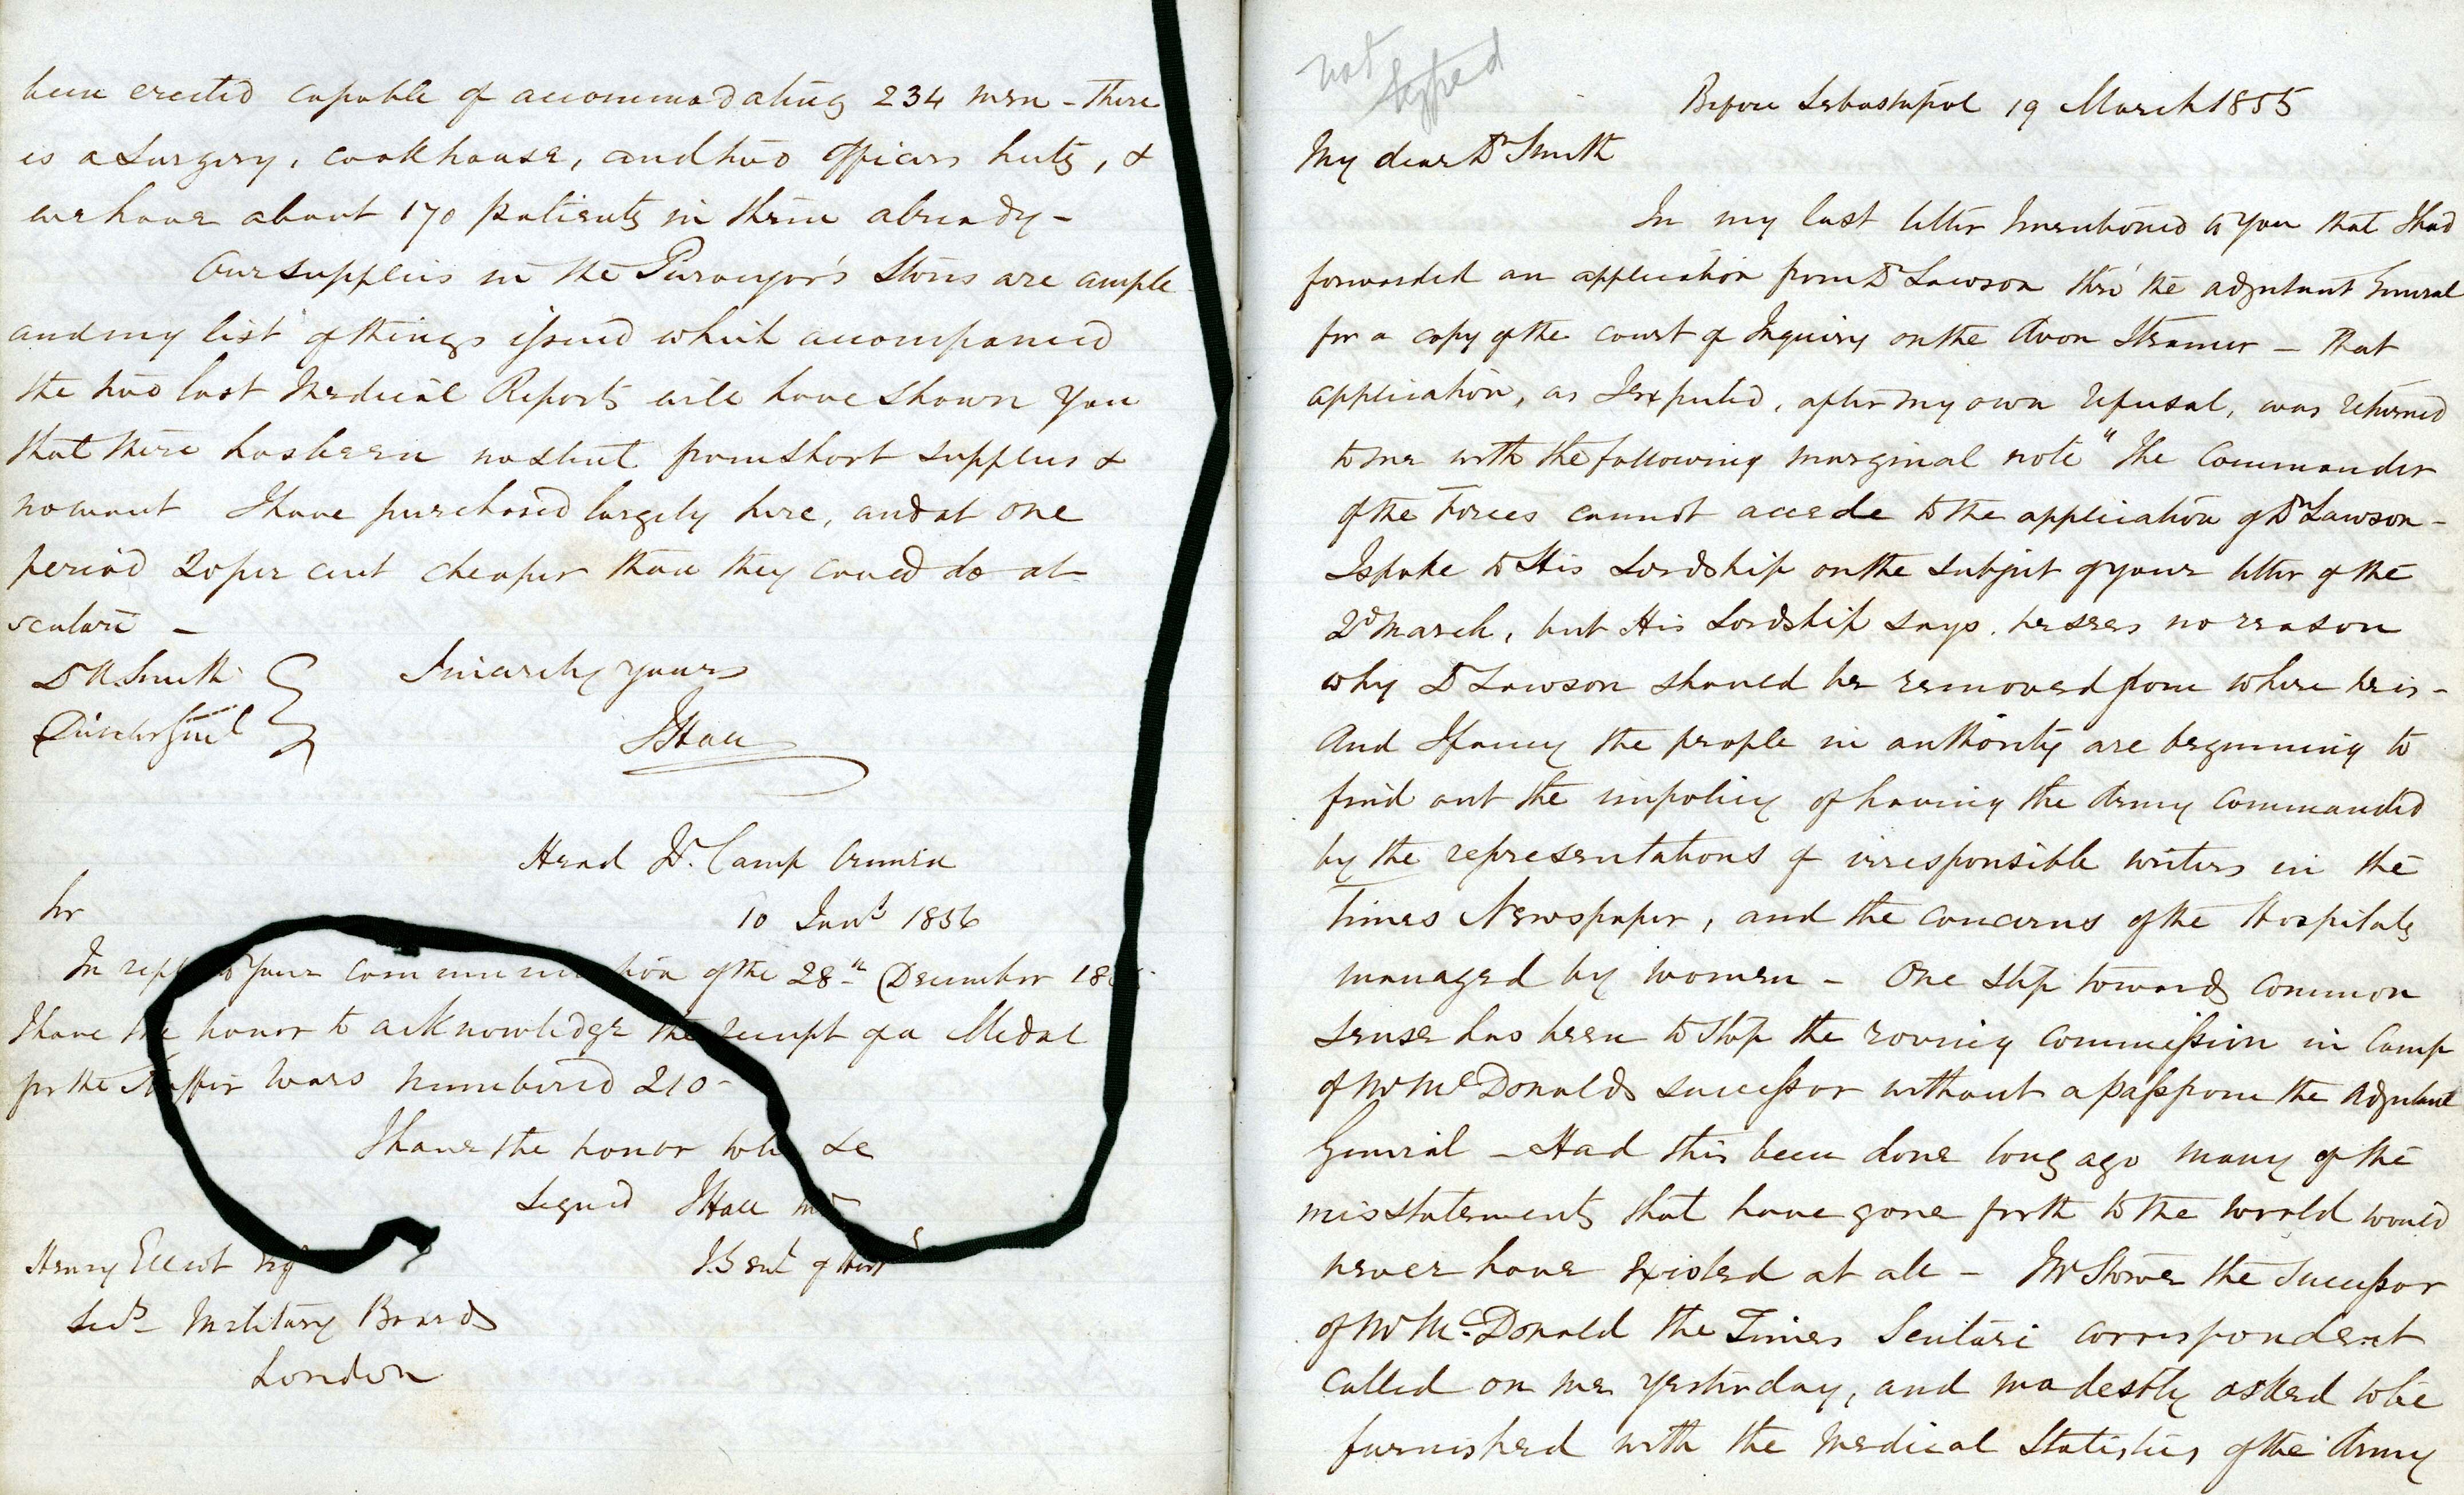 been erected capable of accommodating 234 men - there
is a Surgery, cookhouse, and two officers huts, &
we have about 170 patients in them already -
Our supplies in the Purveyor's Stores are ample
and my list of things issued which accompanied
the two last Medical Reports will have shown you
that there has been no stint from short supplies &
no want I have purchased largely here, and at one
period 20 per cent cheaper than they could do at
Scutari -
Dr A. Smith
Director Genl
Sincerely yours
J Hall
Head Qr. Camp Crimea
10 Jany 1856
Sir
In reply to your communication of the 28th December 18
I have the honor to acknowledge the receipt of a Medal
for the Kaffir Wars numbered 210 -
I have the honor to be &c
Signed J Hall MD
I. Genl of Hosp
Henry Elliot Esq
Secy Military Boards
London
not typed
Before Sebastapol 19 March 1855
My dear Dr Smith
In my last letter I mentioned to you that I had
forwarded an application from Dr Lawson thro' the Adjutant General
for a copy of the court of Inquiry on the Avon Steamer - that
application, as I expected, after my own refusal, was returned
to me with the following marginal note "The Commander
of the Forces cannot accede to the application of Dr Lawson -
I spoke to His Lordship on the subject of your letter of the
2d March, but His Lordship says he sees no reason
why Dr Lawson should be removed from where he is -
And I fancy the people in authority are beginning to
find out the impolicy of having the Army commanded
by the representations of irresponsible writers in the
Times Newspaper, and the concerns of the Hospitals
managed by women - One step towards common
sense has been to stop the roving commission in Camp
of Mr McDonalds successor without a pass from the Adjutant
General - Had this been done long ago many of the
misstatements that have gone forth to the world would
never have existed at all - Mr Stowe the successor
of Mr McDonald the Times Scutari correspondent
called on me yesterday, and modestly asked to be
furnished with the Medical Statistics of the Army